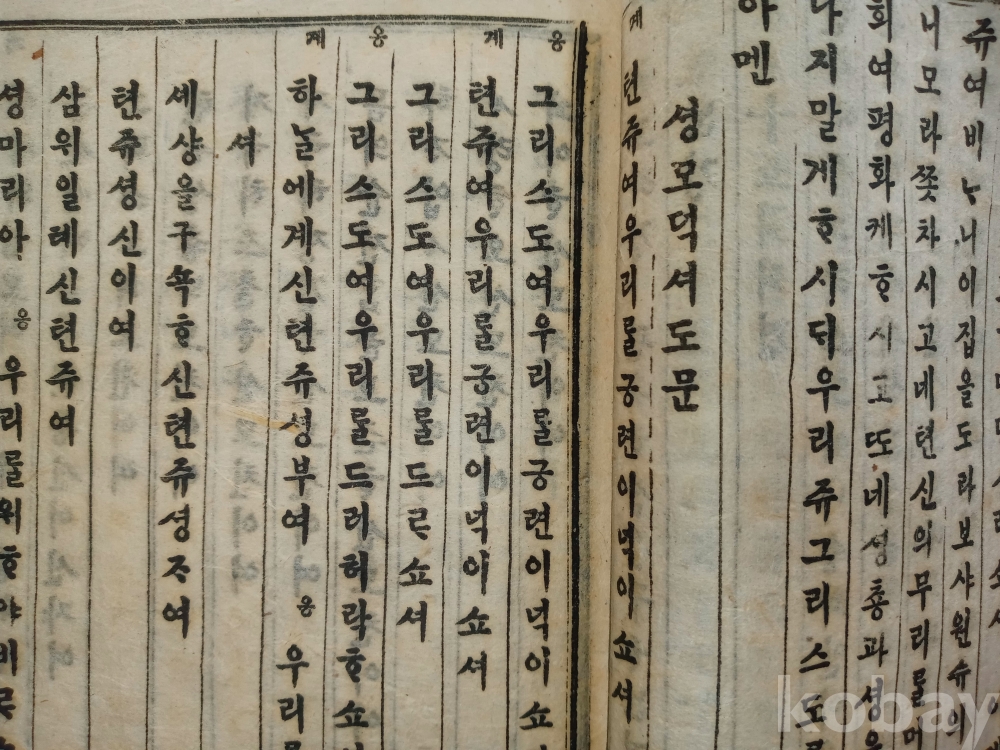 쥬여비ᄂᆞ니이집을도라보샤원슈의
니모라ᄶᅩᆺ차시고네텬신의무리ᄅᆞᆯ머
희여평화케ᄒᆞ시고ᄯᅩ네셩총과셩우
나지말게ᄒᆞ시ᄃᆡ우리쥬그리스도
아멘
셩모덕셔도문
계 텬쥬여우리ᄅᆞᆯ긍련이넉이쇼셔
응 그리스도여우리ᄅᆞᆯ긍련이넉이쇼
계 텬쥬여우리ᄅᆞᆯ긍련이넉이쇼셔
그리스도여우리ᄅᆞᆯ드르쇼셔
응 그리스도여우리ᄅᆞᆯ드러허락ᄒᆞ쇼
계 하ᄂᆞᆯ에계신텬쥬셩부여 응 우리
셔
세샹을구쇽ᄒᆞ신텬쥬셩ᄌᆞ여
텬쥬셩신이여
삼위일톄신텬쥬여
셩마리아 응 우리ᄅᆞᆯ위ᄒᆞ야비르
kobay